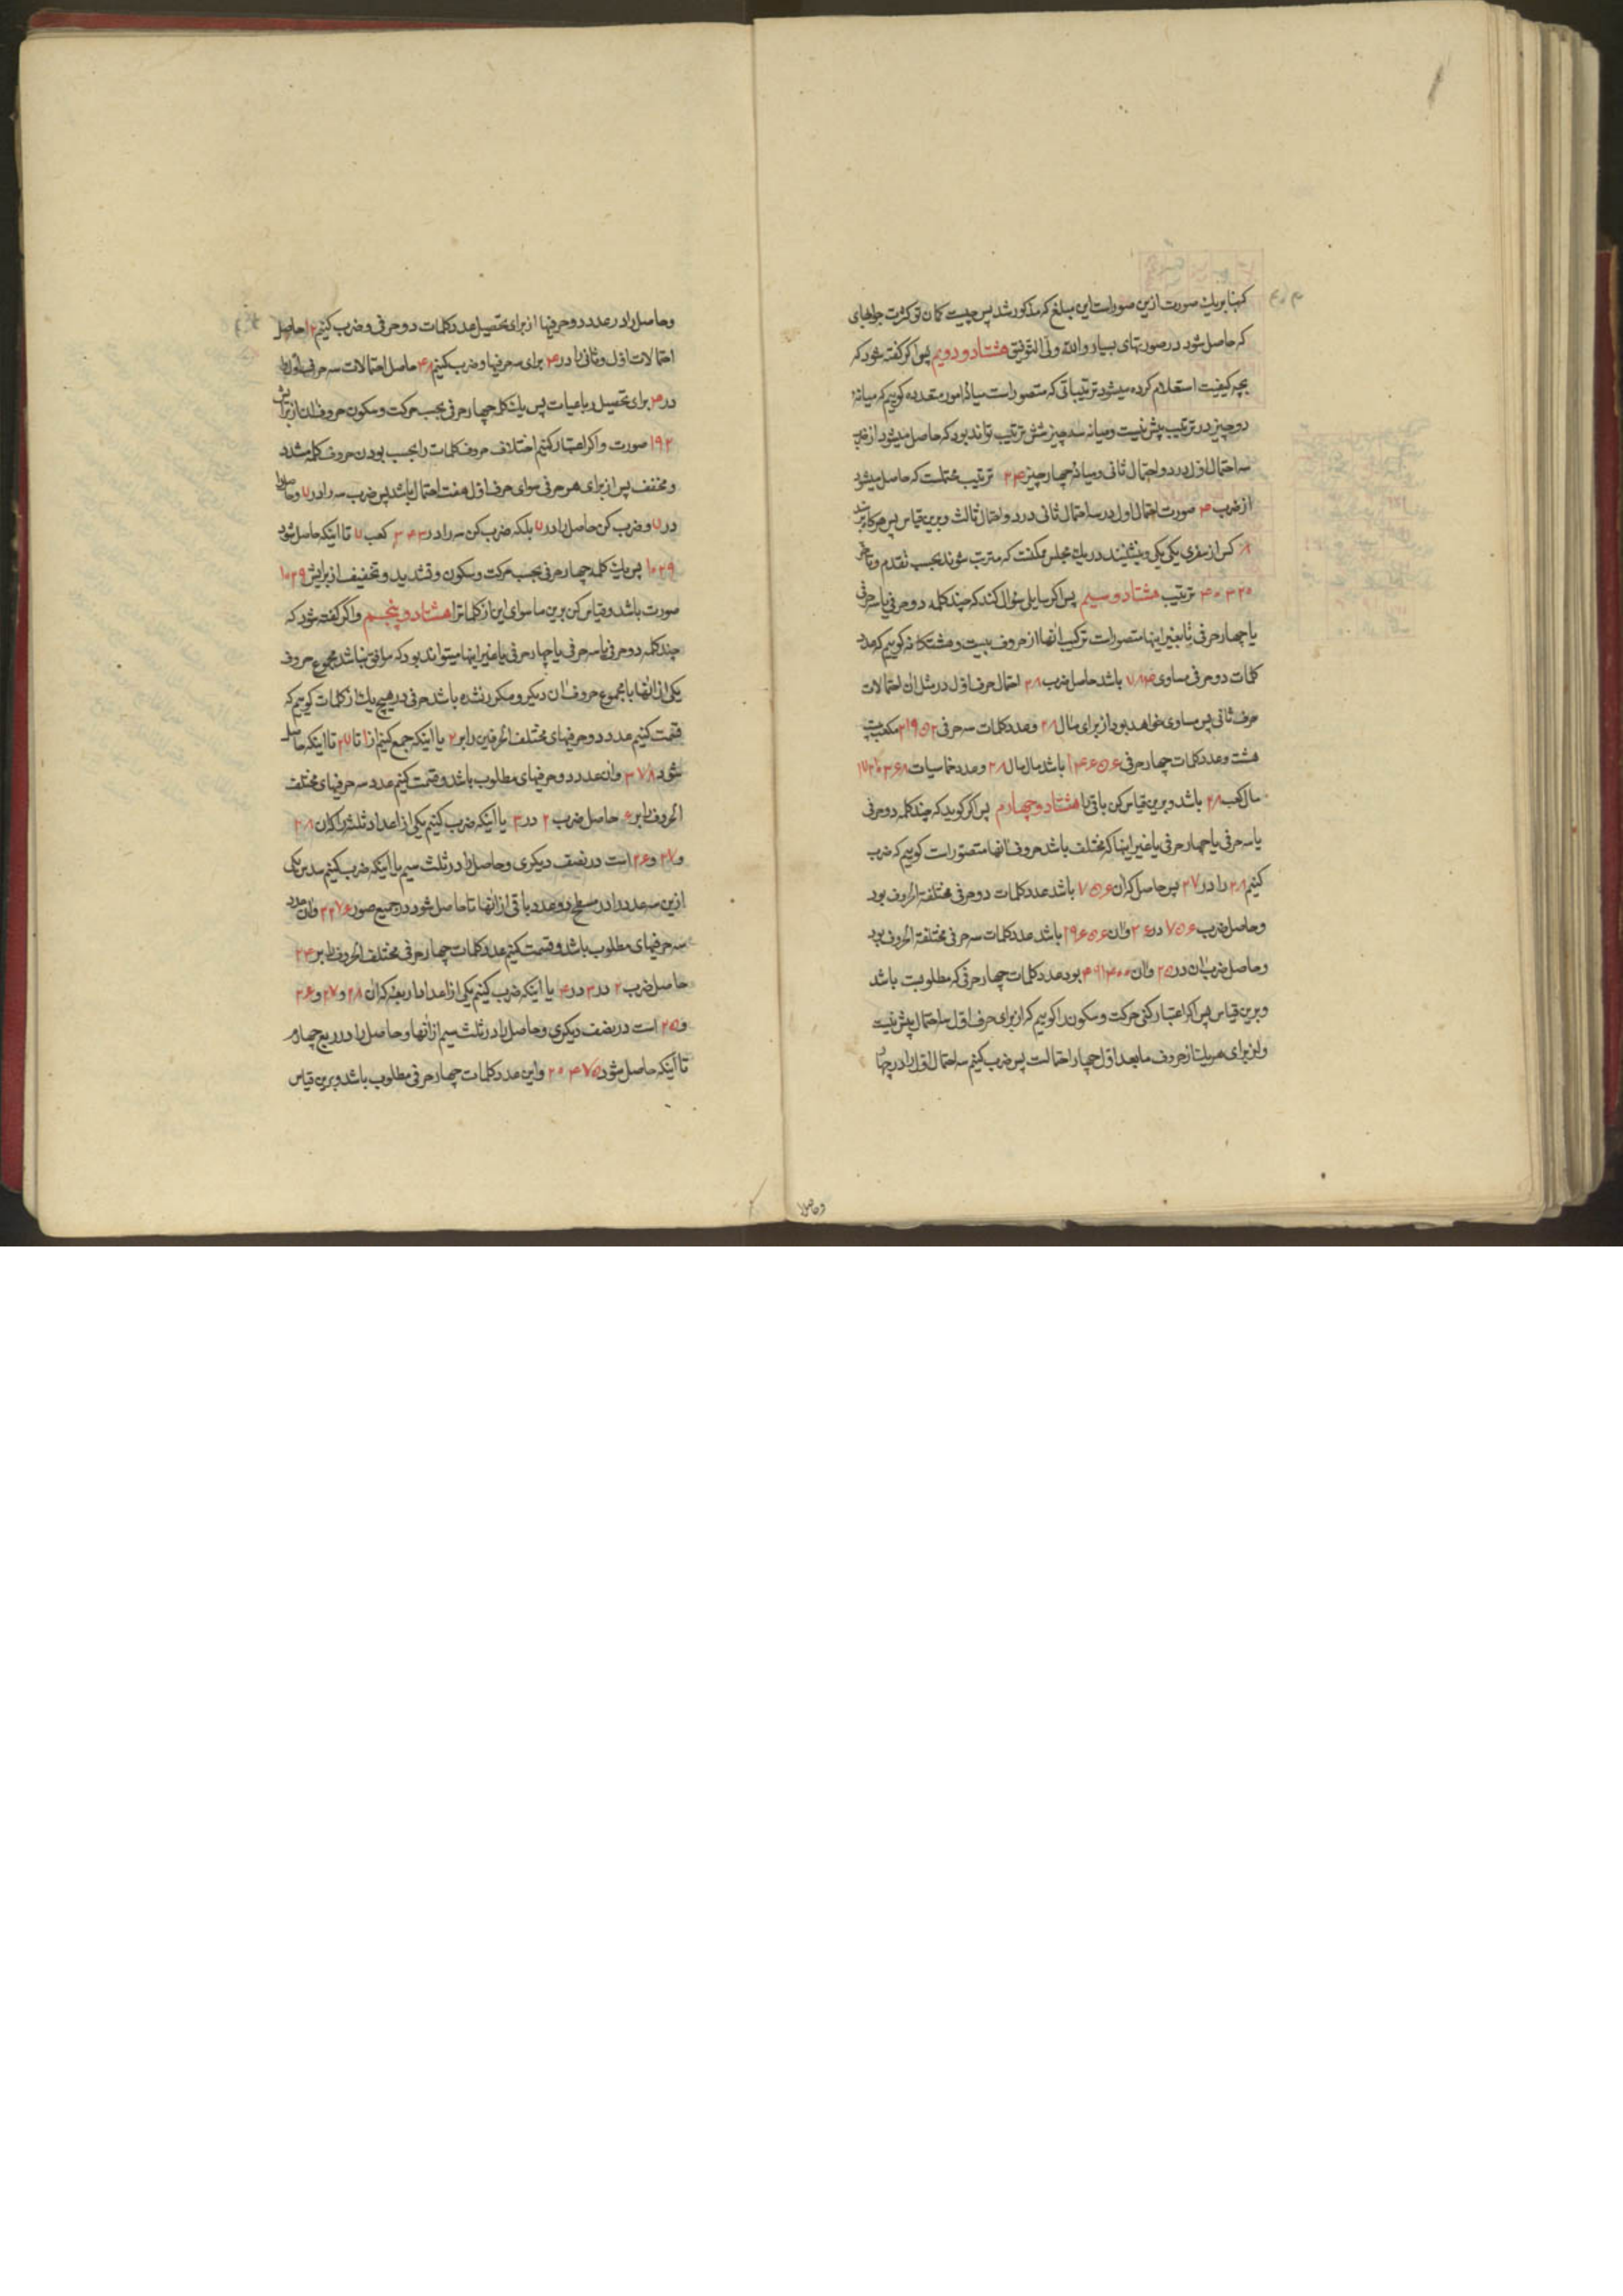 که بنا بر یک صورت ازین صور است این مبلغ که مذکور شد پس چیست کمان تو کثرت جوابهای
که حاصل شود در صورتهای بسیار والله ولی التوفیق هشتاد و دویم پس اکر کفته شود که
بچه کیفیت استعلام کرده میشود ترتیباتی که متصور است میانهٔ امور متعدده کوییم که میانهٔ
دو چیز دو ترتیب پیش نیست و میانه سه چیز شش ترتیب تواند بود که حاصل میشود از ضرب
سه احتمال اول در دو احتمال ثانی و میانهٔ چهار چیز ۲۴ ترتیب محتملست که حاصل میشود
از ضرب ۴ صورت احتمال اول در سه احتمال ثانی در دو احتمال ثالث و برین قیاس پس هرکاه
۸ کس از سفری یکی یکی و بنشینند در یک مجلس ممکنست که مترتب شوند بحسب تقدم و تأخر
۴۰۳۲۰ ترتیب هشتاد و سیم پس اکر سایل سؤال کند که چند کلمه دو حرفی یا سه حرفی
یا چهار حرفی یا بغیر اینها متصور است ترکیب انها از حروف بیست و هشتکانه کوییم که عدد
کلمات دو حرفی مساوی ۷۸۴ باشد حاصل ضرب ۲۸ احتمال حرف اول در مثل ان احتمالات
حرف ثانی پس مساوی خواهد بود از برای مال ۲۸ و عدد کلمات سه حرفی ۲۱۹۵۲ مکعب بیست
هشت و عدد کلمات چهار حرفی ۶۱۴۶۵۶ باشد مال مال ۲۸ و عدد خماسیات ۱۷۲۱۰۳۶۸
مال کعب ۲۸ باشد و برین قیاس کن باقی را هشتاد و چهارم پس اکر کوید که چند کلمه دو حرفی
یا سه حرفی یا چهار حرفی یا غیر اینها که مختلف باشد حروف انها متصور است کوییم که ضرب
کنیم ۲۸ را در ۲۷ پس حاصل که ان ۷۵۶ باشد عدد کلمات دو حرفی مختلفة الحروف بود
و حاصل ضرب ۷۵۶ در ۲۶ و ان ۱۹۶۵۶ باشد عدد کلمات سه حرفی مختلفة الحروف بود
و حاصل ضرب ان در ۲۵ و ان ۴۹۱۴۰۰ بود عدد کلمات چهار حرفی که مطلوبست باشد
و برین قیاس پس اکر اعتبار کنی حرکت و سکون را کوییم که از برای حرف اول سه احتمال پیش نیست
و از برای هر یک از حروف ما بعد اول چهار احتمالست پس ضرب کنیم سه احتمال اول را در چهار
و حاصل را
و حاصل را در عدد دو حرفیها از برای تحصیل عدد کلمات دو حرفی و ضرب کنیم ۱۲ حاصل
احتمالات اول و ثانی را در ۴ برای سه حرفیها و ضرب کنیم ۴۸ حاصل احتمالات سه حرف اول را
در ۴ برای تحصیل رباعیات پس یک کلمه چهار حرفی بحسب حرکت و سکون حروف ان از برایش
۱۹۲ صورت و اکر اعتبار کنیم اختلاف حروف کلمات را بحسب بودن حروف کلمه مشدد
و مخفف پس از برای هر حرفی سوای حرف اول هفت احتمال باشد پس ضرب سه را در ۷ و حاصل را
در ۷ و ضرب کن حاصل را در ۷ بلکه ضرب کن سه را در ۳۴۳ کعب ۷ تا اینکه حاصل شود
۱۰۲۹ پس یک کلمه چهار حرفی بحسب حرکت و سکون و تشدید و تخفیف از برایش ۱۰۲۹
صورت باشد و قیاس کن برین ما سوای این از کلمات را هشتاد و پنجم و اکر کفته شود که
چند کلمه دو حرفی یا سه حرفی یا چهار حرفی یا غیر اینها میتواند بود که موافق نباشد مجموع حروف
یکی از انها با مجموع حروف ان دیکر و مکرر نشده باشد حرفی در هیچ یک از کلمات کوییم که
قسمت کنیم عدد دو حرفیهای مختلف الحرفین را بر ۲ یا اینکه جمع کنیم از ۱ تا ۲۷ تا اینکه حاصل
شود ۳۷۸ و ان عدد دو حرفیهای مطلوب باشد و قسمت کنیم عدد سه حرفیهای مختلف
الحروف را بر ۶ حاصل ضرب ۲ در ۳ یا اینکه ضرب کنیم یکی از اعداد ثلثه را که ان ۲۸
و ۲۷ و ۲۶ است در نصف دیکری و حاصل را در ثلث سیم یا اینکه ضرب کنیم سدس یکی
ازین سه عدد را در مسطح دو عدد باقی از انها تا حاصل شود در جمیع صور ۳۲۷۶ و ان عدد
سه حرفیهای مطلوب باشد و قسمت کنیم عدد کلمات چهار حرفی مختلف الحروف را بر ۲۴
حاصل ضرب ۲ در ۳ در ۴ یا اینکه ضرب کنیم یکی از اعداد اربعه که ان ۲۸ و ۲۷ و ۲۶
و ۲۵ است در نصف دیکری و حاصل را در ثلث سیم از انها و حاصل را در ربع چهارم
تا اینکه حاصل شود ۲۰۴۷۵ و این عدد کلمات چهار حرفی مطلوب باشد و برین قیاس